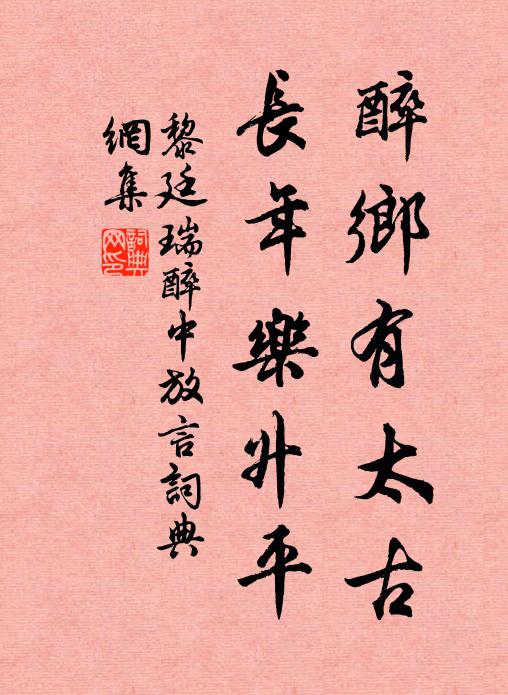 醉鄉有太古
長年樂升平
黎廷瑞醉中放言詞典
網集
詞典
网印